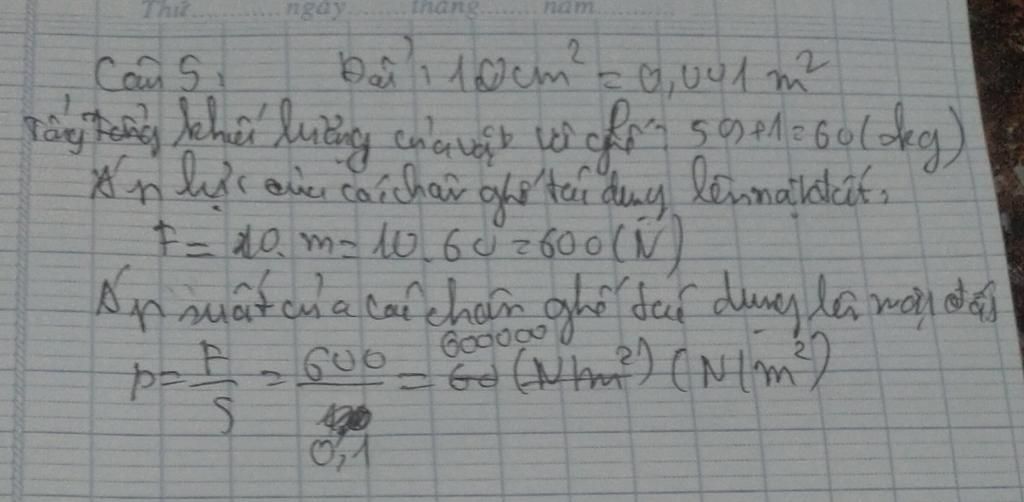 Thứ ngày tháng năm
Câu 5, Đổi, 10cm² = 0,001 m²
khối lượng của vật và ghế: 59+1=60(kg)
Áp lực của cái chân ghế tác dụng lên mặt đất,
F = 10. m = 10. 60 = 600(N)
Áp suất của cái chân ghế tác dụng lên mặt đất
600000
p = F/S = 600/0,1 = 60 (N/m²) (N/m²)